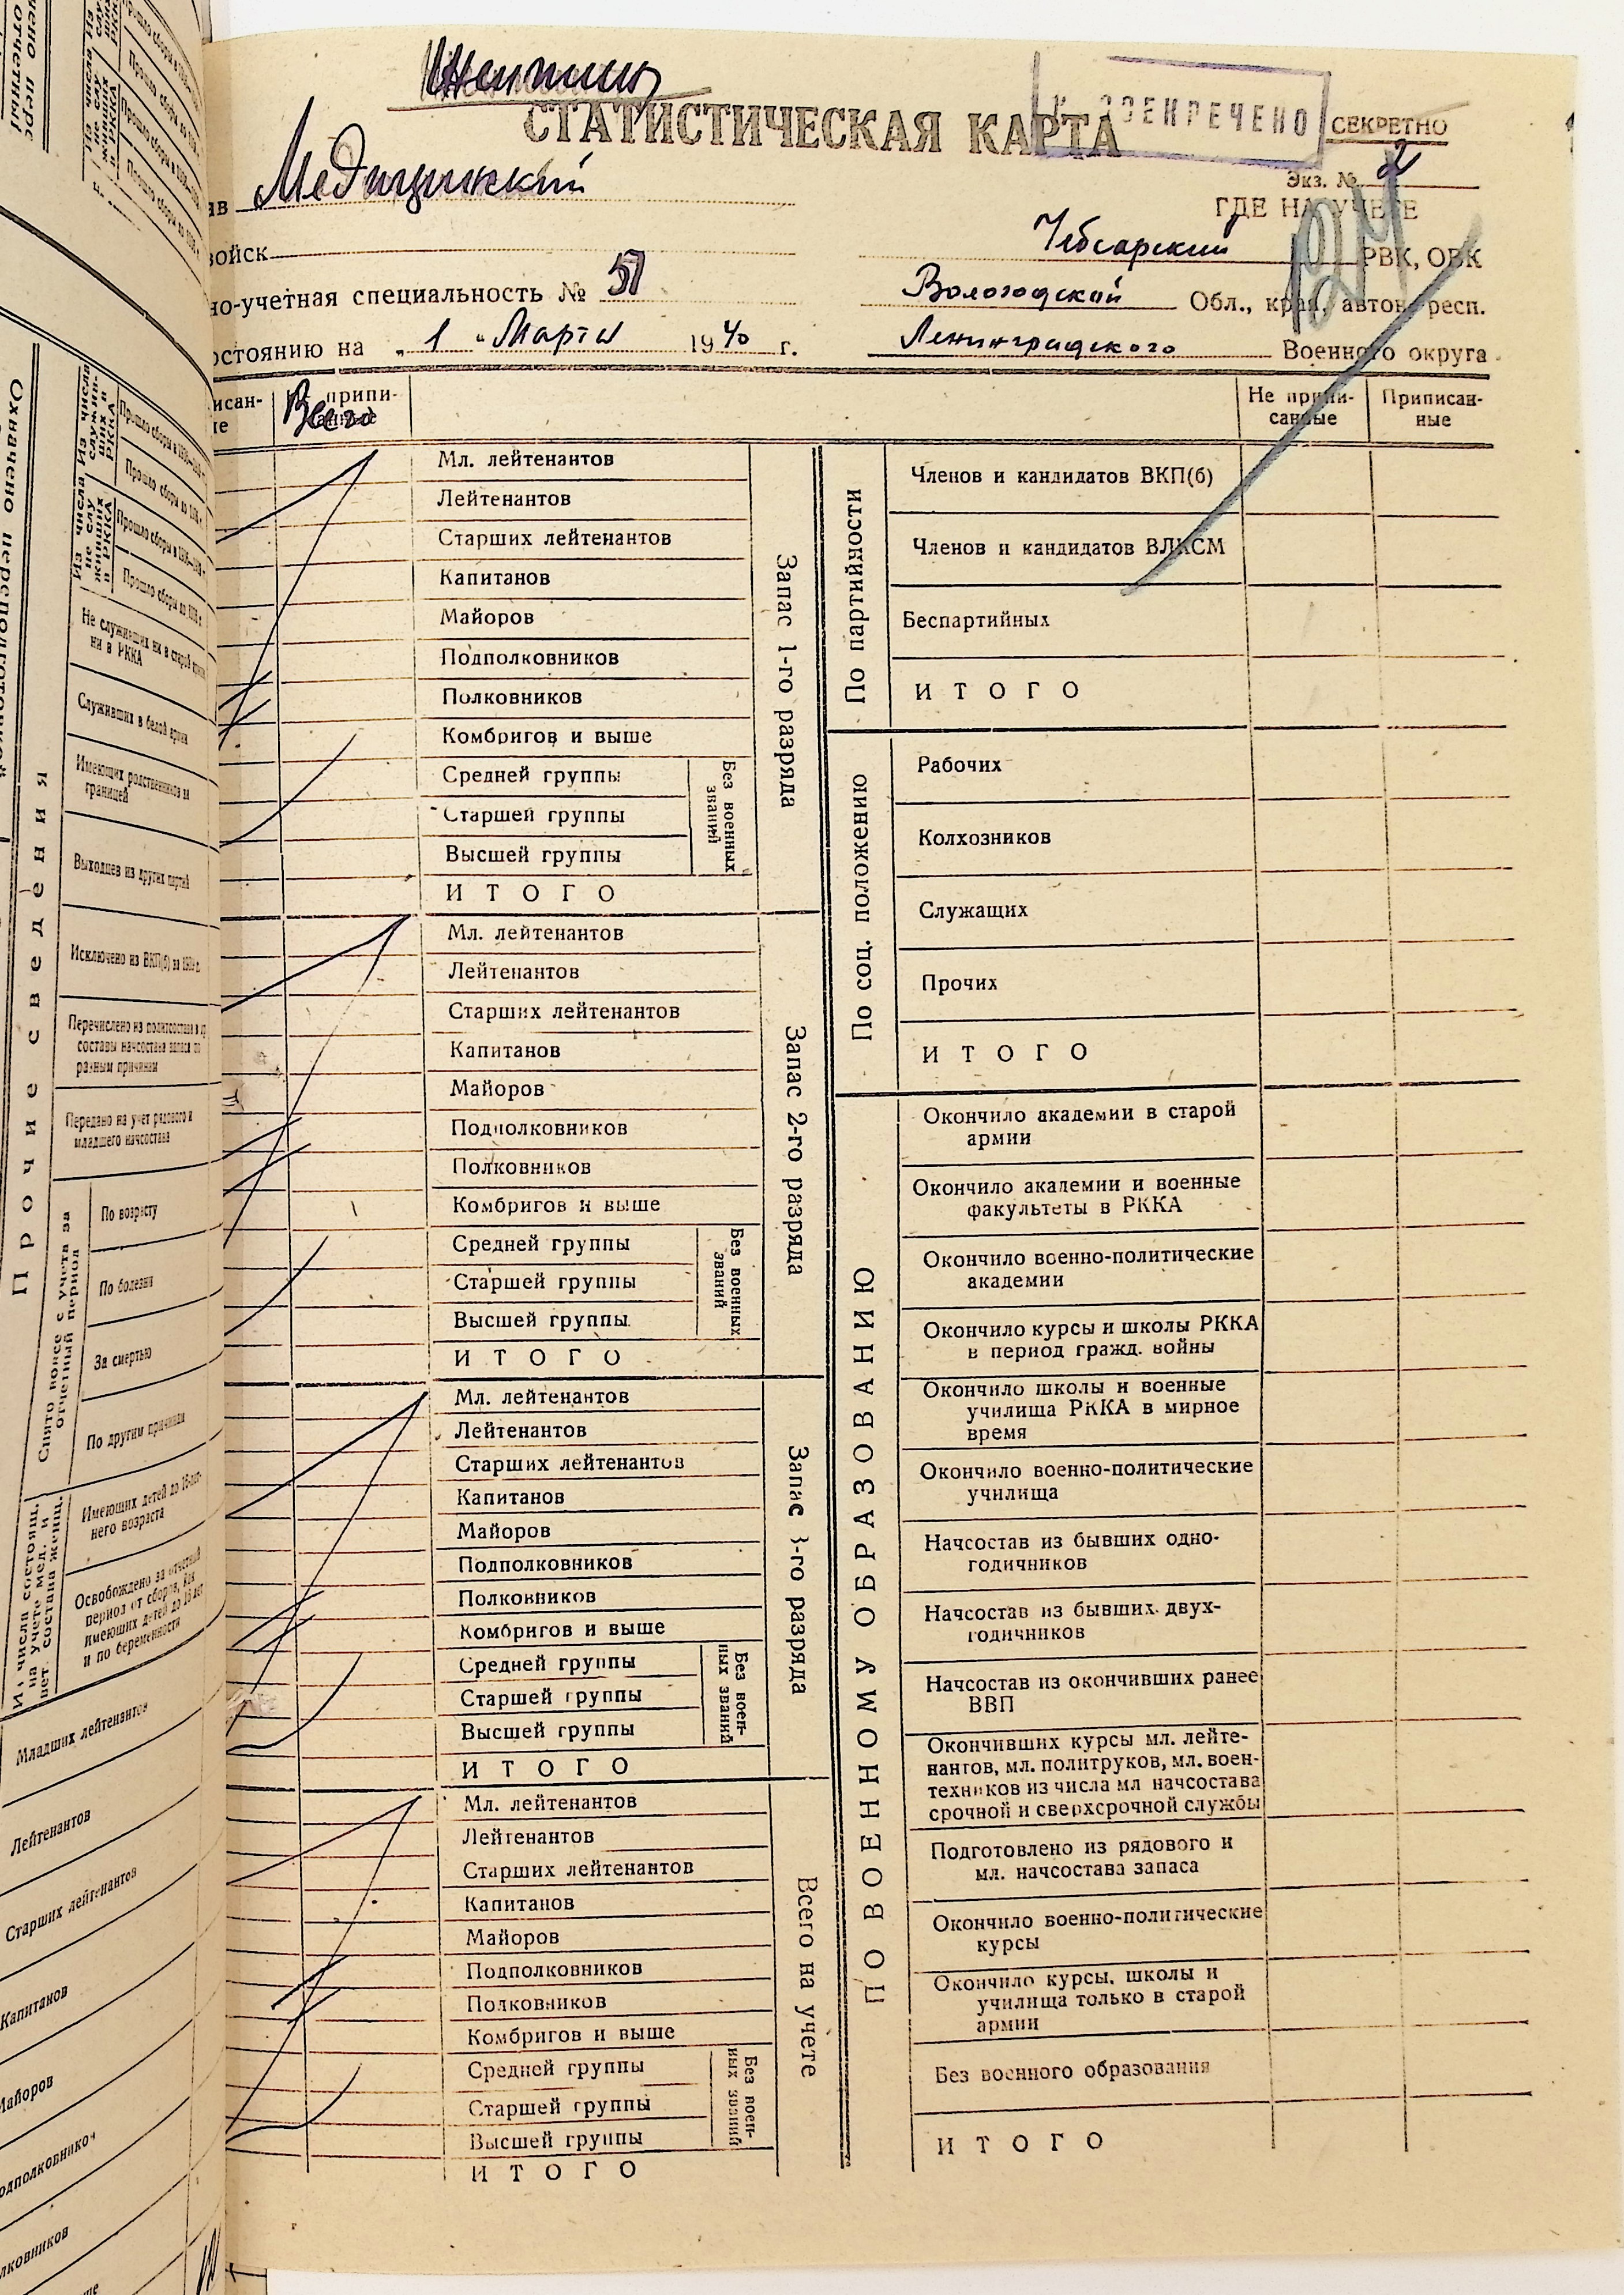 Женщины
СТАТИСТИЧЕСКАЯ КАРТА
СЕКРЕТНО
Экз. № 2
ав Медицинский
ГДЕ НА УЧЕТЕ
войск
Чебсарский РВК, ОВК
но-учетная специальность № 57
Вологодской Обл., края, автон. респ.
остоянию на „ 1 “ Марта 1940 г.
Ленинградского Военного округа
исан-
ые
Всего
припи-
Не припи-
санные
Приписан-
ные
Мл. лейтенантов
Лейтенантов
Старших лейтенантов
Капитанов
Майоров
Подполковников
Полковников
Комбригов и выше
Средней группы
Старшей группы
Высшей группы
Без военных
званий
ИТОГО
Запас 1-го разряда
Мл. лейтенантов
Лейтенантов
Старших лейтенантов
Капитанов
Майоров
Подполковников
Полковников
Комбригов и выше
Средней группы
Старшей группы
Высшей группы
Без военных
званий
ИТОГО
Запас 2-го разряда
Мл. лейтенантов
Лейтенантов
Старших лейтенантов
Капитанов
Майоров
Подполковников
Полковников
Комбригов и выше
Средней группы
Старшей группы
Высшей группы
Без воен-
ных званий
ИТОГО
Запас 3-го разряда
Мл. лейтенантов
Лейтенантов
Старших лейтенантов
Капитанов
Майоров
Подполковников
Полковников
Комбригов и выше
Средней группы
Старшей группы
Высшей группы
Без воен-
ных званий
ИТОГО
Всего на учете
По партийности
Членов и кандидатов ВКП(б)
Членов и кандидатов ВЛКСМ
Беспартийных
ИТОГО
По соц. положению
Рабочих
Колхозников
Служащих
Прочих
ИТОГО
ПО ВОЕННОМУ ОБРАЗОВАНИЮ
Окончило академии в старой
армии
Окончило академии и военные
факультеты в РККА
Окончило военно-политические
академии
Окончило курсы и школы РККА
в период гражд. войны
Окончило школы и военные
училища РККА в мирное
время
Окончило военно-политические
училища
Начсостав из бывших одно-
годичников
Начсостав из бывших двух-
годичников
Начсостав из окончивших ранее
ВВП
Окончивших курсы мл. лейте-
нантов, мл. политруков, мл. воен-
техников из числа мл начсостава
срочной и сверхсрочной службы
Подготовлено из рядового и
мл. начсостава запаса
Окончило военно-политические
курсы
Окончило курсы, школы и
училища только в старой
армии
Без военного образования
ИТОГО
Прочие сведения
Из числа
служив-
ших в
РККА
Прошло сборы до 1938 г.
Из числа
не слу
живших
в РККА
Прошло сборы до 1938 г.
Не служивших ни в старой армии
ни в РККА
Служивших в белой армии
Имеющих родственников за
границей
Выходцев из других партий
Исключено из ВКП(б) за 1939 г.
Перечислено из политсостава в др
составы начсостава запаса по
разным причинам
Передано на учет рядового и
младшего начсостава
Снято вовсе с учета за
отчетный период
По возрасту
По болезни
За смертью
По другим причинам
Из числа состоящ.
на учете мед. и
вет. состава женщ.
Имеющих детей до 16-лет-
него возраста
Освобождено за отчетный
период от сборов, как
имеющих детей до 16 лет
и по беременности
Младших лейтенантов
Лейтенантов
Старших лейтенантов
Капитанов
Майоров
одполковников
лковников